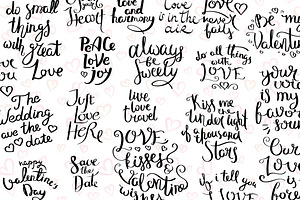 do small
things
with great
Love
Heart
love
and harmony
Love
is in the
air
love
never
fails
Be my
Valentine
PEACE
LOVE
JOY
always
be
lovely
do all things
with
LOVE
your
voice
is my
favorite
sound
The
Wedding
save the
date
Just
Love
HeRe
live
love
travel
Kiss me
under light
of thousand
Stars
happy
Valentine's
Day
Save
the
Date
LOVE
kisses
Valentine
wishes
if i tell you
Our